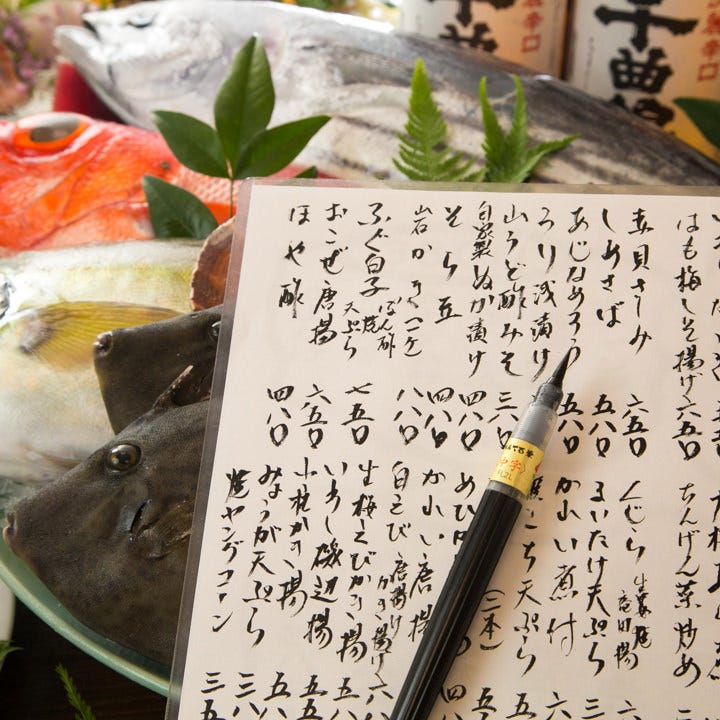 はも梅しそ揚げ 六五〇
赤貝さしみ 六五〇
しめさば 五八〇
あじなめろう 五八〇
うり浅漬け
山うど酢みそ 三八〇
自家製ぬか漬け 四八〇
そら豆 四八〇
岩かき(一ヶ) 八八〇
ふぐ白子 ぽん酢 焼 天ぷら 七五〇
おこぜ唐揚 六五〇
ほや酢 四八〇
ちんげん菜炒め
くじら 生姜焼 竜田揚
まいたけ天ぷら
かれい煮付
こち天ぷら
(二本)
かれい唐揚
白えび 唐揚げ かき揚げ
生梅えびかき揚
いわし磯辺揚
小柱かき揚
みょうが天ぷら
焼ヤングコーン
千曲
辛口